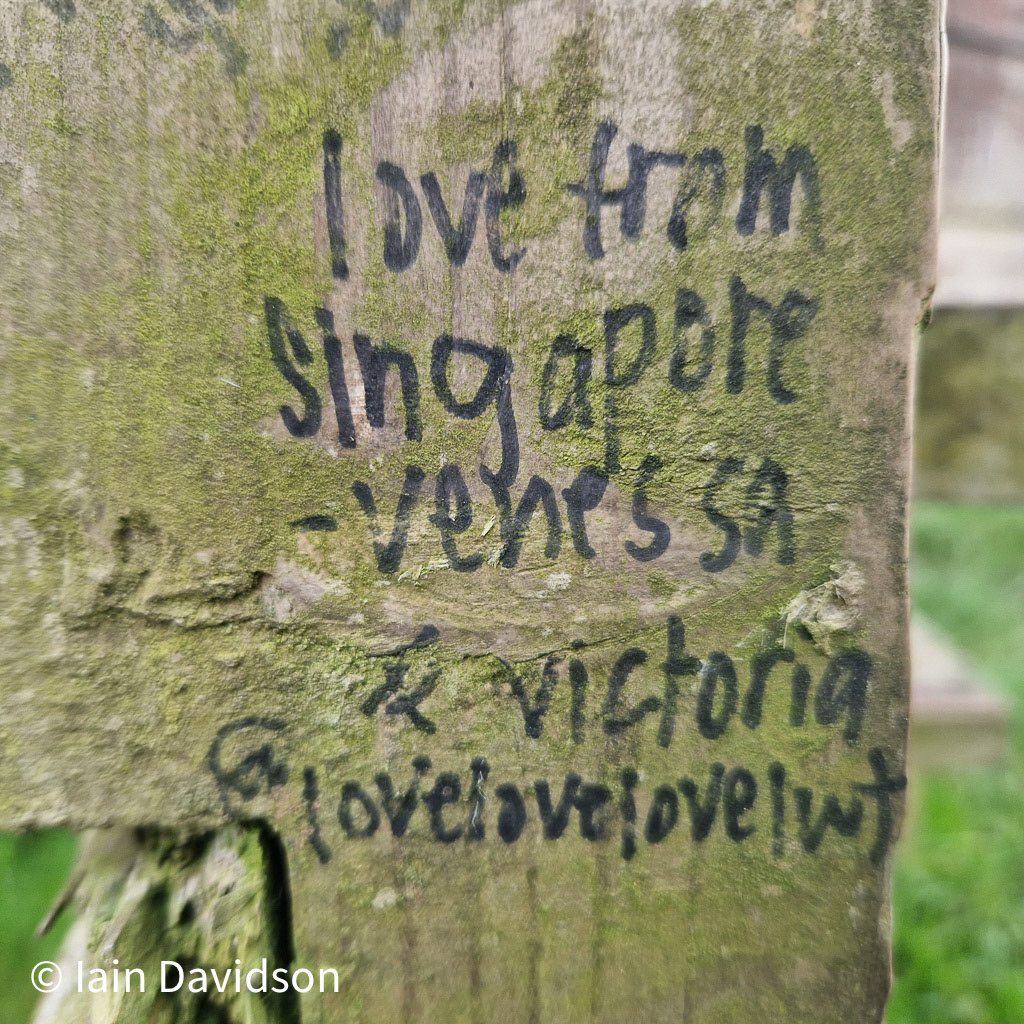 love from
singapore
- venessa
& victoria
@lovelovelovelwt
© Iain Davidson